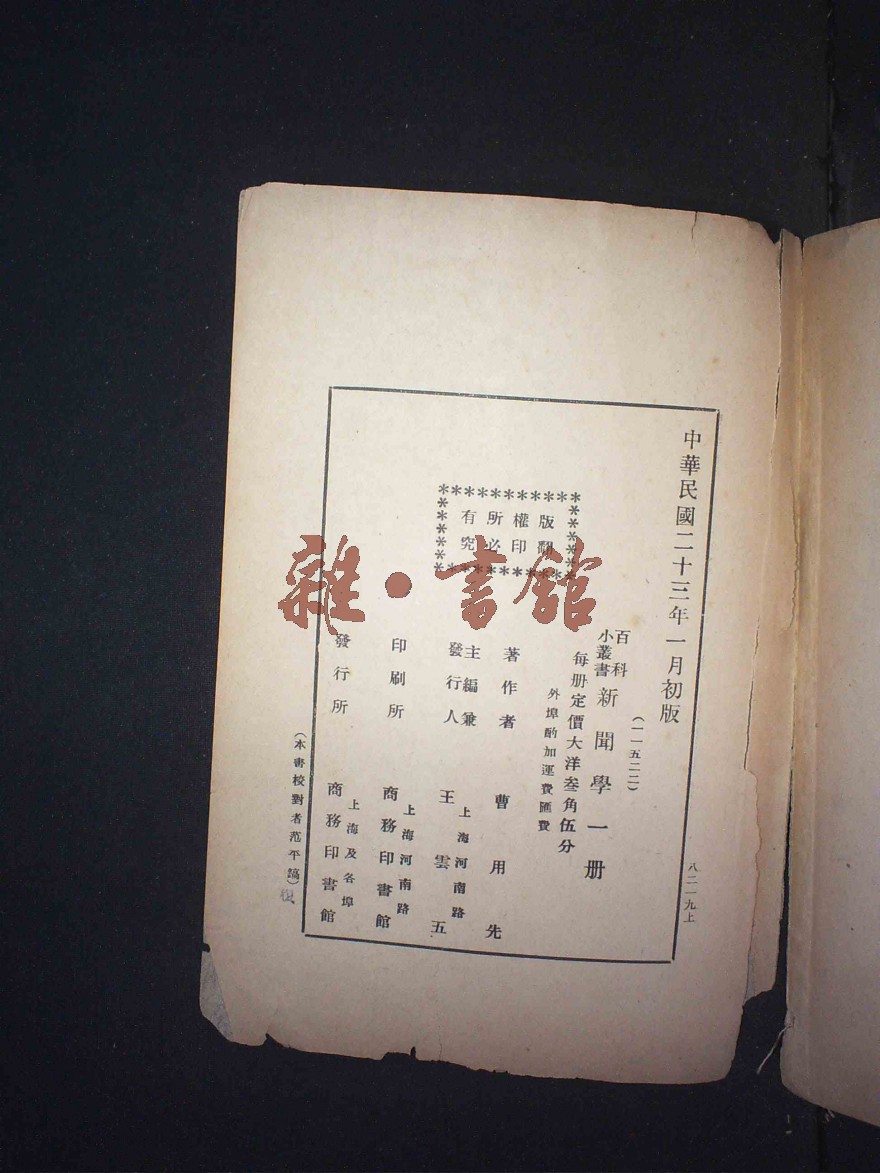 中華民國二十三年一月初版
(一一五二二)
百科
小叢書
新聞學一册
每册定價大洋叁角伍分
外埠酌加運費匯費
版權所有
翻印必究
著作者 曹用先
主編兼
發行人
上海河南路
王雲五
印刷所
上海河南路
商務印書館
發行所
上海及各埠
商務印書館
(本書校對者范平議)
八二一九上
雜·書館